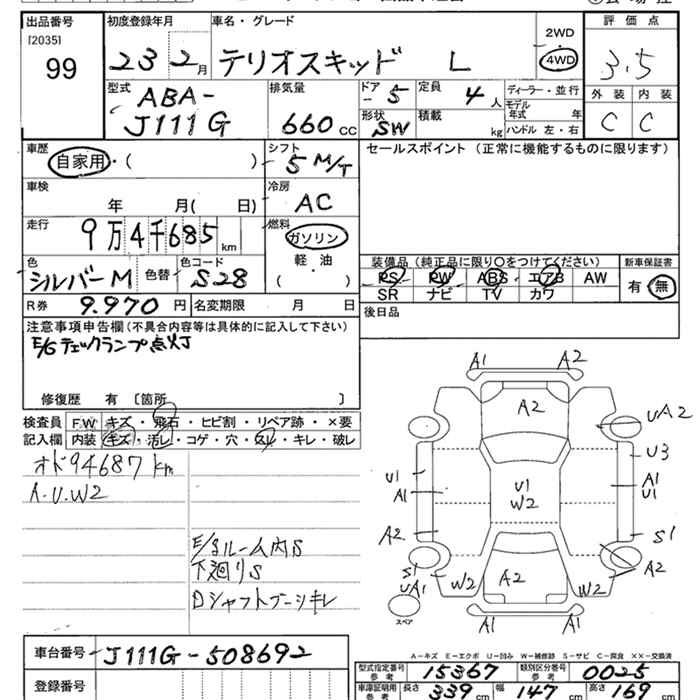 出品番号 初度登録年月 車名・グレード 評価点
[2035] 99 23 2月 テリオスキッド L 2WD 4WD 3.5
型式 ABA-J111G 排気量 660cc ドアー 5 定員 4人 ディーラー・並行 外装 内装
形状 SW 積載 kg モデル年式 年 ハンドル 左・右 C C
車歴 自家用・( ) シフト 5 M/T セールスポイント(正常に機能するものに限ります)
車検 年 月( 日) 冷房 AC
走行 9万4千685km 燃料 ガソリン 軽・油 ( )
色 シルバーM 色替 色コード S28
装備品(純正品に限り○をつけてください) 新車保証書
PS PW ABS エアB AW 有 無
SR ナビ TV カワ
R券 9.970円 名変期限 月 日 後日品
注意事項申告欄(不具合内容等は具体的に記入して下さい)
E/Gチェックランプ点灯
修復歴 有〔箇所 〕
検査員 F.W キズ・飛石・ヒビ割・リペア跡・×要
記入欄 内装 キズ・汚レ・コゲ・穴・スレ・キレ・破レ
オド94687km
A.U.W2
E/gルーム内S
下廻りS
Dシャフトブーツキレ
A1 A2
A2 UA2
U3
U1 A1 U1 W2 A1 U1
A2 S1
S1 UA1 W2 A2 W2 A2
スペア A1 A1
A-キズ E-エクボ U-凹み W-補修跡 S-サビ C-腐食 XX-交換済
車台番号 J111G-508692
型式指定番号 参考 15367 類別区分番号 参考 0025
登録番号
車庫証明用 参考 長さ 339cm 幅 147cm 高さ 169cm